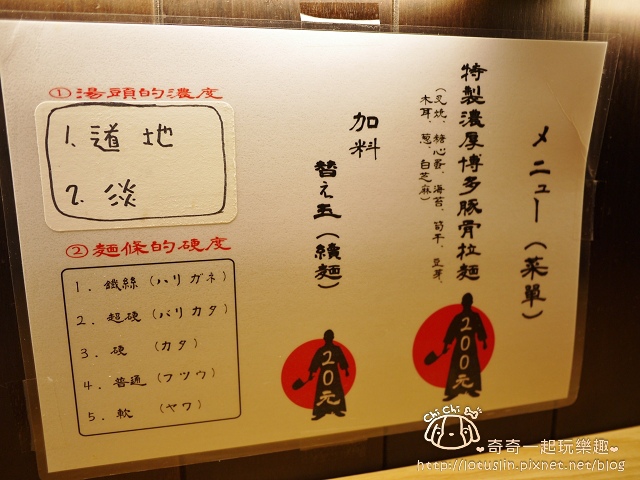 メニュー（菜單）
特製濃厚博多豚骨拉麵
（叉燒、糖心蛋、海苔、筍干、豆芽、
木耳、蔥、白芝麻）
200元
加料
替え玉（續麵）
20元
①湯頭的濃度
1. 道地
2. 淡
②麵條的硬度
1. 鐵絲（ハリガネ）
2. 超硬（バリカタ）
3. 硬 （カタ）
4. 普通（フツウ）
5. 軟 （ヤワ）
Chi Chi
❤奇奇一起玩樂趣❤
http://lotuslin.pixnet.net/blog